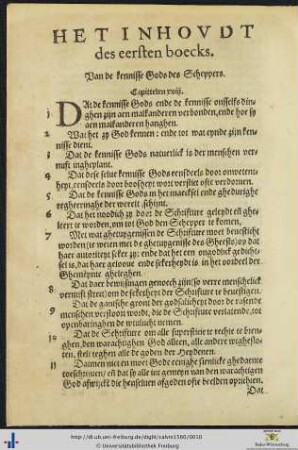 HET INHOVDT
des eersten boecks.
Van de kennisse Gods des Scheppers.
Capittelen xviij.
1 DAt de kennisse Gods ende de kennisse onsselfs din-
ghen zijn aen malkanderen verbonden, ende hoe sy
aen malkanderen hanghen.
2 Wat het zy God kennen: ende tot wat eynde zijn ken-
nisse dient.
3 Dat de kennisse Gods natuerlick is der menschen ver-
nuft ingheplant.
4 Dat dese selue kennisse Gods eensdeels door onweten-
heyt, eensdeels door boosheyt wort versticht ofte verdornen.
5 Dat de kennisse Gods in het maecksel ende ghedurighe
regheeringhe der werelt schijnt.
6 Dat het noodich zy door de Schrifture geleydt ende ghe-
leert te worden, om tot God den Schepper te komen.
7 Met wat ghetuygenissen de Schrifture moet beuesticht
worden (te weten met de ghetuygenisse des Gheests) op dat
haer autoriteyt seker zy: ende dat het een ongodlick gedicht-
sel is, dat haer geloouе ende sekerheydt is in het oordeel der
Ghemeynte gheleghen.
8 Dat daer bewijsingen genoech zijn (so verre menschelick
vernuft streckt) om de sekerheyt der Schrifture te beuestigen.
9 Dat de gantsche gront der godsalicheyt door de rasende
menschen verstoort wordt, die de Schrifture verlatende, tot
openbaringen de wtulucht nemen.
10 Dat de Schrifture om alle superstitie te rechte te bren-
ghen, den warachtighen God alleen, alle andere wtghesto-
ten, stelt teghen alle de goden der Heydenen.
11 Datmen niet en moet Gode eenighe sienlicke ghedaente
toeschrijuen: ende dat sy alle int gemeyn van den warachtigen
God afwijckt die henseluen afgoden ofte beelden oprichten.
Dat
http://dl.ub.uni-freiburg.de/diglit/calvin1560/0010
© Universitätsbibliothek Freiburg